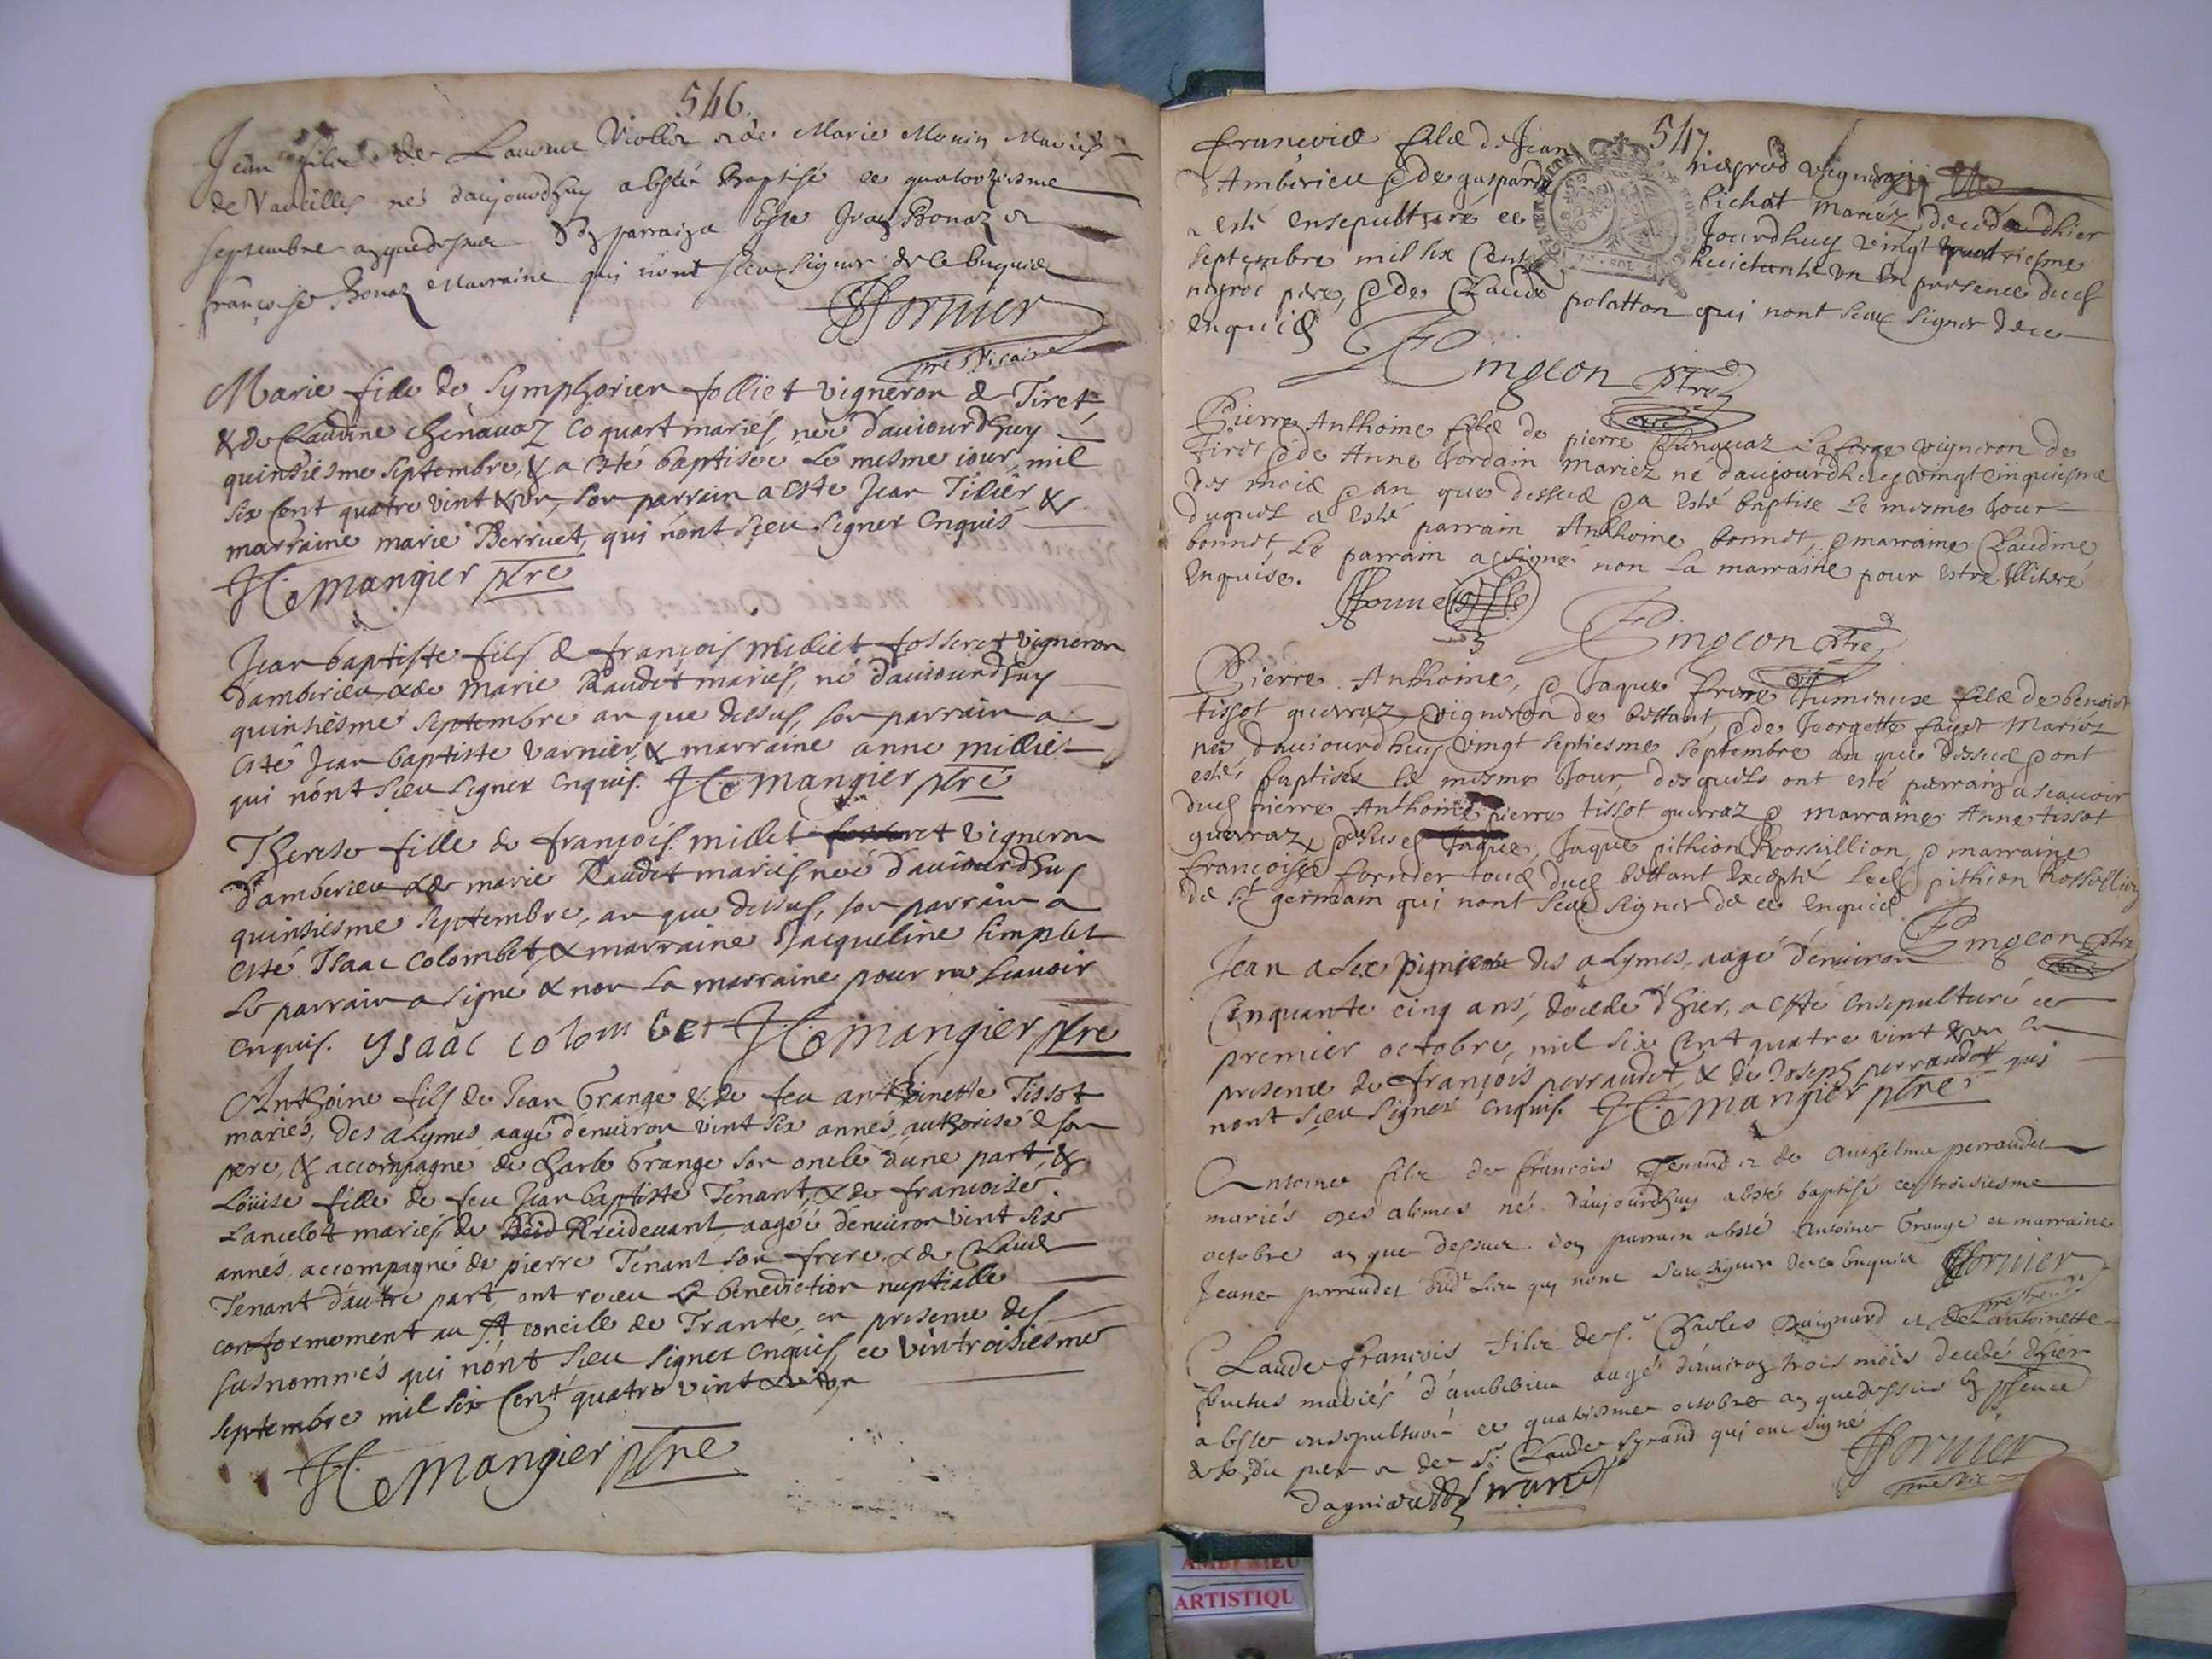 546.
Jean filz de Laurent Viollet & de Marie Monin Mariés
de Vareilles né d'aujourdhuy a esté Baptisé ce quatorziesme
septembre an que dessus son parrain Este Jean Bonaz &
françoise Bonaz Marraine qui nont sceu signer de ce Enquis
Fornier
pre Vicaire
Marie fille de Symphorien folliet vigneron de Tiret,
& de Claudine chenavaz Coquart mariés, neé d'aujourdhuy
quinsiesme septembre, & a esté baptisée le mesme iour, mil
six Cent quatre vint & un, son parrain a este Jean Tilier &
marraine marie Berruet, qui nont sceu signer enquis
Mangier ptre
Jean baptiste fils de françois milliet fosseret vigneron
d'amberieu & de Marie Raudet mariés, né d'aujourdhuy
quinsiesme septembre an que dessus, son parrain a
esté Jean baptiste Varnier, & marraine anne milliet
qui nont sceu signer enquis. Mangier ptre
Therese fille de françois millet vigneron
d'amberieu & de marie Raudet mariés neé d'aujourdhuy
quinsiesme septembre, an que dessus, son parrain a
esté Isaac Colombet, & marraine Jacqueline simplet
le parrain a signé & non la marraine pour ne scavoir
enquis. ysaac colombet Mangier ptre
Anthoine fils de Jean Grange & de feu anthoinette Tissot
mariés, des alymes aagé denuiron vint six annés, authorisé de son
pere, & accompagné de charle Grange son oncle dune part, &
Loüise fille de feu Jean baptiste Tenant, & de francoise
Lancelot mariés, de aagéé denuiron vint six
annés accompagné de pierre Tenant son frere & de Claude
Tenant d'autre part, ont receu la benediction nuptialle
conformement au St concile de Trante, en presence des
susnommés qui nont sceu signer enquis, ce vintroisiesme
septembre mil six Cent quatre vint & un
Mangier ptre
547
françois filz de Jean nieprod vigneron
d'Amberieu & de gasparde bichat Mariéz, decedé dhier
a esté ensepulturé ce Jourdhuy vingt quatriesme
septembre mil six Cent huictante un en presence dud
père, & de Claude polatton qui nont sceu signer de ce
enquis
Pingeon ptre
Pierre Anthoine filz de pierre Chenavaz Laforge vigneron de
Tiret & de Anne Jordain mariez né d'aujourdhuy vingt cinquiesme
des mois & an que dessus & a esté baptisé le mesme Jour
duquel a esté parrain Anthoine bonnet, & marraine Claudine
bonnet, Le parrain a signé non la marraine pour estre Illiteré
enquise. Bonnet
Pingeon ptre
Pierre Anthoine, & Jaque frere Jumeaux filz de benoist
tissot guerraz vigneron de bettant, & de Georgette fayet Mariéz
nés daujourdhuy vingt septiesme septembre an que dessus & ont
estés baptisés le mesme Jour, desquels ont esté parrains a scavoir
dud pierre Anthoine pierre tissot guerraz & marraine Anne tissot
guerraz, & dud Jaque, Jaque pithion Rossillion & marraine
françoise fornier tous dud bettant Excepté led pithion Rossillion
de St germain qui nont sceu signer de ce enquis
Pingeon ptre
Jean des alymes, aagé d'enuiron
Cinquante cinq ans, decedé d'hier, a esté ensepulturé ce
premier octobre, mil six Cent quatre vint & un en
presence de françois perraudet, & de Joseph perraudet qui
nont sceu signer enquis. Mangier ptre
Antoine filz de françois Tenand & de Anthelma perraudet
mariés des alimes né d'aujourdhuy a esté baptisé ce troisiesme
octobre an que dessus son parrain a esté Antoine Grange et marraine
Jeane perraudet dud Lieu qui nont sceu signer de ce Enquis Fornier
Claude françois filz de sr Charles Daignard et de antoinette
mariés d'amberieu aagé d'enuiron trois mois decedé dhier
a este ensepulturé ce quatriesme octobre an que dessus En psence
du pere & de Sr Claude Syrand qui ont signé
Syrand
Fornier
AMBERIEU
ARTISTIQU